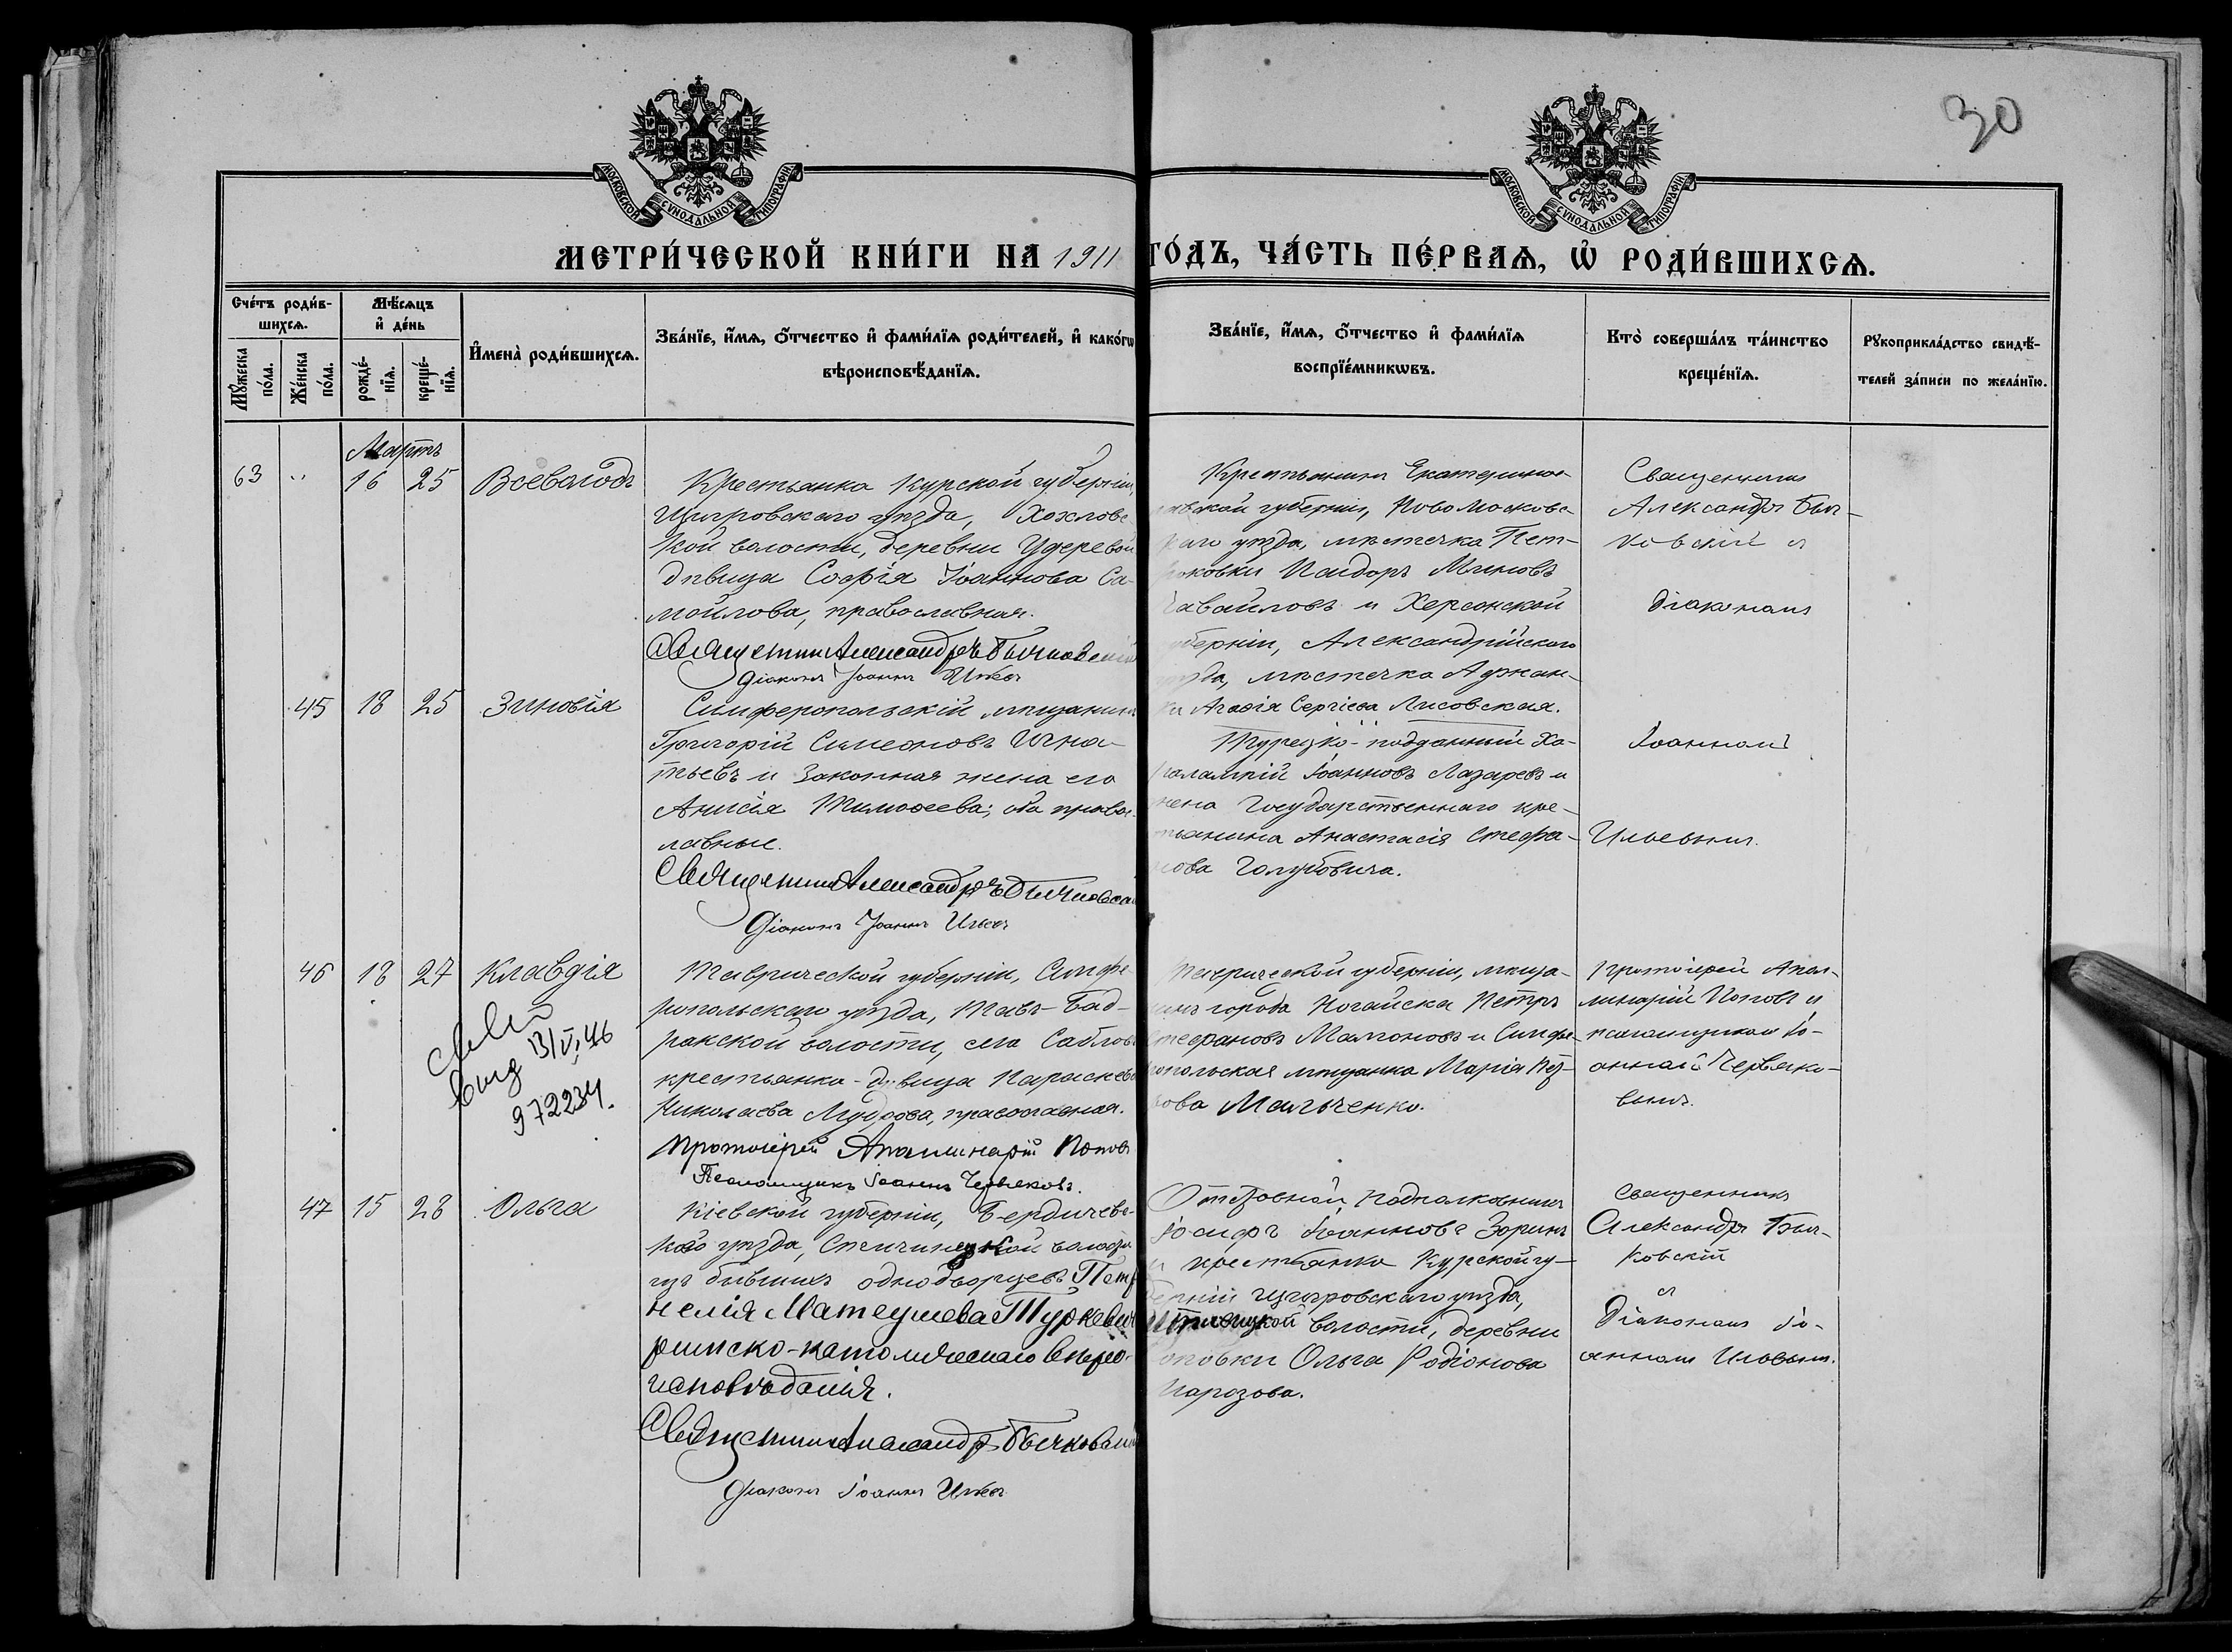 30
МОСКОВСКОЙ СУНОДАЛЬНОЙ ТИПОГРАФІИ
МОСКОВСКОЙ СУНОДАЛЬНОЙ ТИПОГРАФІИ
МЕТРИ́ЧЕСКОЙ КНИ́ГИ НА 1911 ГО́ДЪ, ЧА́СТЬ ПЕ́РВАѦ, Ѽ РОДИ́ВШИХСѦ.
Сче́тъ роди́в-
шихсѧ.
Мꙋ́жеска по́ла.
Же́нска по́ла.
Мѣ́сѧцъ
и҆ де́нь
рожде́-
нїѧ.
креще́-
нїѧ.
И҆мена̀ роди́вшихсѧ.
Зва́нїе, и҆́мѧ, ѻ҆́тчество и҆ фами́лїѧ роди́телей, и҆ како́гѡ
вѣроисповѣ́данїѧ.
Зва́нїе, и҆́мѧ, ѻ҆́тчество и҆ фами́лїѧ
воспрїе́мникѡвъ.
Кто̀ соверша́лъ та́инство
креще́нїѧ.
Рꙋкоприкла́дство свидѣ́-
телей за́писи по жела́нїю.
Мартъ
63 " 16 25 Всеволодъ
Крестьянка Курской губерніи,
Щигровскаго уѣзда, Хохловс
кой волости, деревни Удеревой
дѣвица Софія Іоаннова Са-
мойлова, православная.
Священник Александръ Бычковскій
Діаконъ Іоаннъ Ильевъ
Крестьянинъ Екатеринос
лавской губерніи, Новомосковс
каго уѣзда, мѣстечка Пет-
роковки Исидоръ Миновъ
и Херсонской
губерніи, Александрійскаго
уѣзда, мѣстечка Аджам-
ки Агаѳія Сергіева Лисовская.
Священникъ
Александръ Быч-
ковскій и
діаконом
Іоанномъ
Ильевымъ.
45 18 25 Зиновія
Симферопольскій мѣщанинъ
Григорій Симеоновъ Игна-
тьевъ и законная жена его
Анисія Тимоѳеева; оба правос-
лавные.
Священник Александръ Бычковскій
Діаконъ Іоаннъ Ильевъ
Турецко-подданный Ха-
ралампій Іоанновъ Лазаревъ и
жена Государственнаго кре-
стьянина Анастасія Стефа-
нова Голубовича.
46 18 27 Клавдія
Таврической губерніи, Симфе
ропольскаго уѣзда, Тавъ-Бад-
ракской волости, села Саблов
крестьянка-дѣвица Параскева
Николаева Мудрова, православная.
Протоіерей Аполинарій Поповъ
Псаломщикъ Іоаннъ Червяковъ.
Таврической губерніи, мѣща-
нинъ города Ногайска Петръ
Стефановъ Мамоновъ и Симфе-
ропольская мѣщанка Марія Пет-
рова Мальченко.
Протоіерей Апол-
линарій Поповъ и
псаломщикомъ Іо-
анномъ Червяко-
вымъ.
13/VI 46
972234.
47 15 28 Ольга
Кіевской губерніи, Бердичевс-
каго уѣзда, Спичинецкой волости
изъ бывшихъ однодворцевъ Петро
нелія Матеушева Туркевичъ
римско-католическаго вѣро-
исповѣданія.
Священник Александръ Бычковскій
Діаконъ Іоаннъ Ильевъ
Отставной Подполковникъ
Іосифъ Іоанновъ Зоринъ
и крестьянка Курской гу-
берніи Щигровскаго уѣзда,
волости, деревни
Ольга Родіонова
Священникъ
Александръ Быч-
ковскій
и
Діаконом Іо-
анном Ильевым.